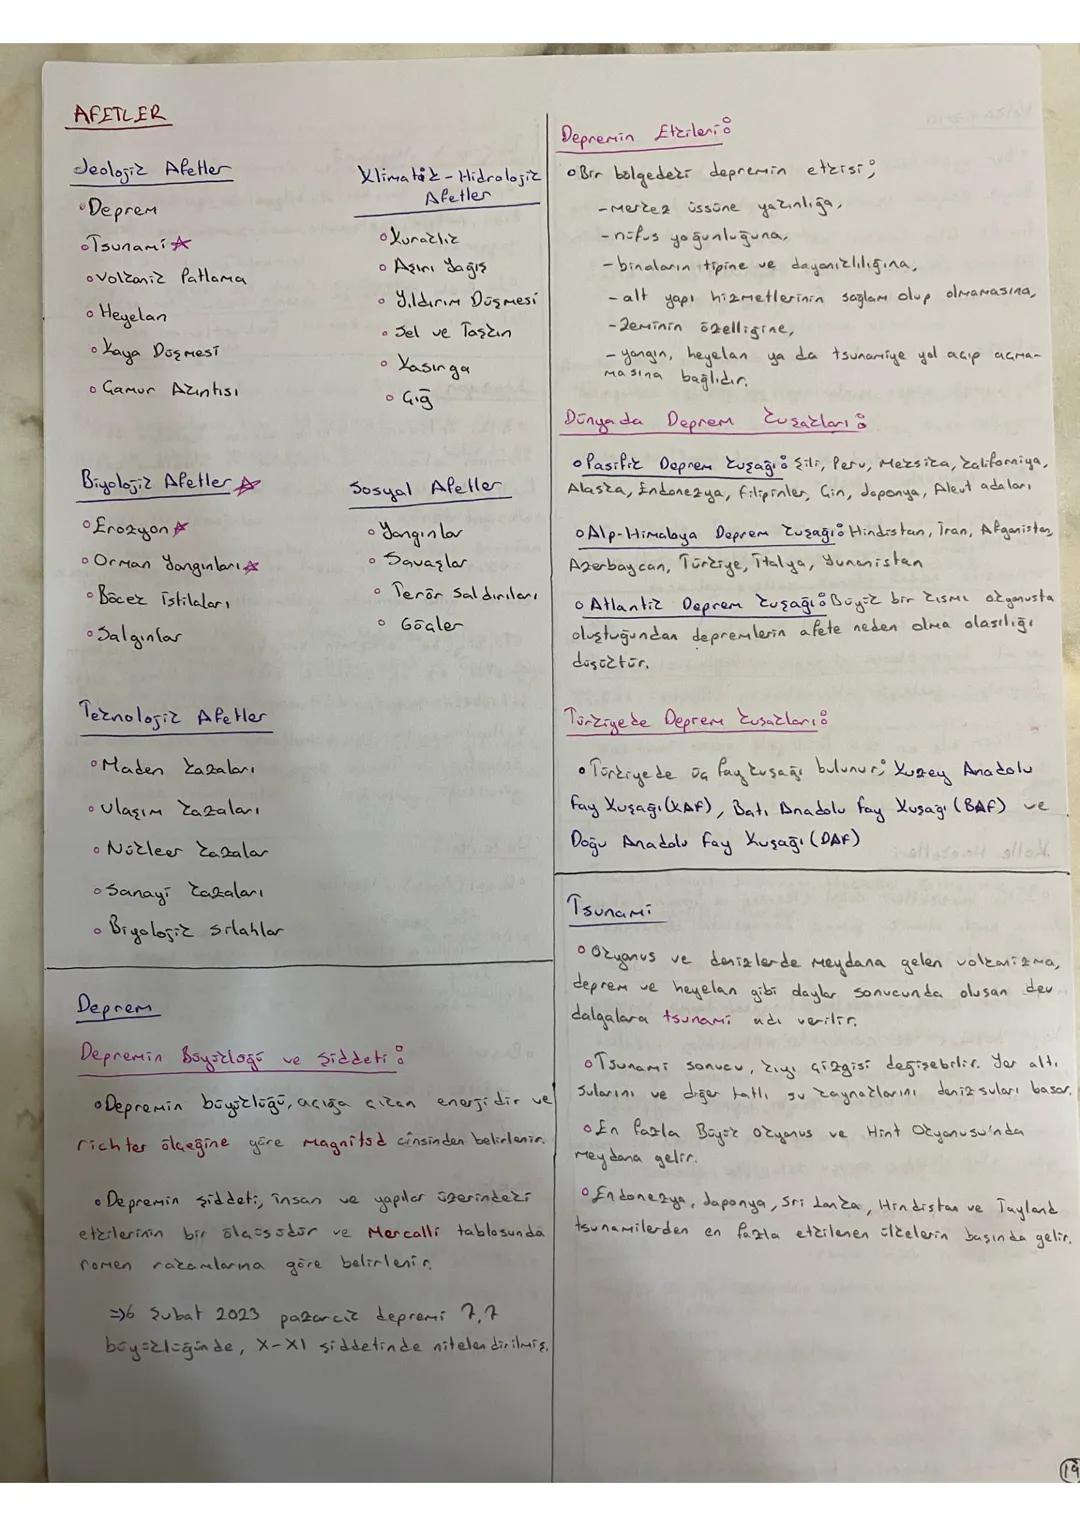 AFETLER
Jeolojik Afetler
• Deprem
• Tsunami ☆
• Volkanik Patlama
• Heyelan
• Kaya Düşmesi
• Çamur Akıntısı
Klimatik - Hidrolojik
Afetler
• Kuraklık
• Aşırı Yağış
• Yıldırım Düşmesi
• Sel ve Taşkın
• Kasırga
• Çığ
Biyolojik Afetler ☆
• Erozyon ☆
• Orman Yangınları ☆
• Böcek İstilaları
• Salgınlar
Sosyal Afetler
• Yangınlar
• Savaşlar
• Terör Saldırıları
• Göçler
Teknolojik Afetler
• Maden kazaları
• Ulaşım kazaları
• Nükleer kazalar
• Sanayi kazaları
• Biyolojik silahlar
Deprem
Depremin Büyüklüğü ve Şiddeti:
• Depremin büyüklüğü, açığa çıkan enerjidir ve
richter ölçeğine göre magnitüd cinsinden belirlenir.
• Depremin şiddeti, insan ve yapılar üzerindeki
etkilerinin bir ölçüsüdür ve Mercalli tablosunda
romen rakamlarına göre belirlenir.
⇒ 6 Şubat 2023 pazarcık depremi 7,7
büyüklüğünde, X-XI şiddetinde nitelendirilmiş.
Depremin Etkileri:
• Bir bölgedeki depremin etkisi;
- merkez üssüne yakınlığa,
- nüfus yoğunluğuna,
- binaların tipine ve dayanıklılığına,
- alt yapı hizmetlerinin sağlam olup olmamasına,
- zeminin özelliğine,
- yangın, heyelan ya da tsunamiye yol açıp açma-
masına bağlıdır.
Dünyada Deprem kuşakları:
• Pasifik Deprem kuşağı: Şili, Peru, Meksika, kaliforniya,
Alaska, Endonezya, Filipinler, Çin, Japonya, Aleut adaları
• Alp-Himalaya Deprem kuşağı: Hindistan, İran, Afganistan,
Azerbaycan, Türkiye, İtalya, Yunanistan
• Atlantik Deprem kuşağı: Büyük bir kısmı okyanusta
oluştuğundan depremlerin afete neden olma olasılığı
düşüktür.
Türkiyede Deprem kuşakları:
• Türkiyede üç fay kuşağı bulunur; Kuzey Anadolu
Fay Kuşağı (KAF), Batı Anadolu Fay Kuşağı (BAF) ve
Doğu Anadolu Fay Kuşağı (DAF)
Tsunami
• Okyanus ve denizlerde meydana gelen volkanizma,
deprem ve heyelan gibi daylar sonucunda olusan dev
dalgalara tsunami adı verilir.
• Tsunami sonucu, kıyı çizgisi değişebilir. Yer altı
sularını ve diğer tatlı su kaynaklarını deniz suları basar.
• En fazla Büyük okyanus ve Hint Okyanusu'nda
meydana gelir.
• Endonezya, Japonya, Sri Lanka, Hindistan ve Tayland
tsunamilerden en fazla etkilenen ülkelerin başında gelir.
19